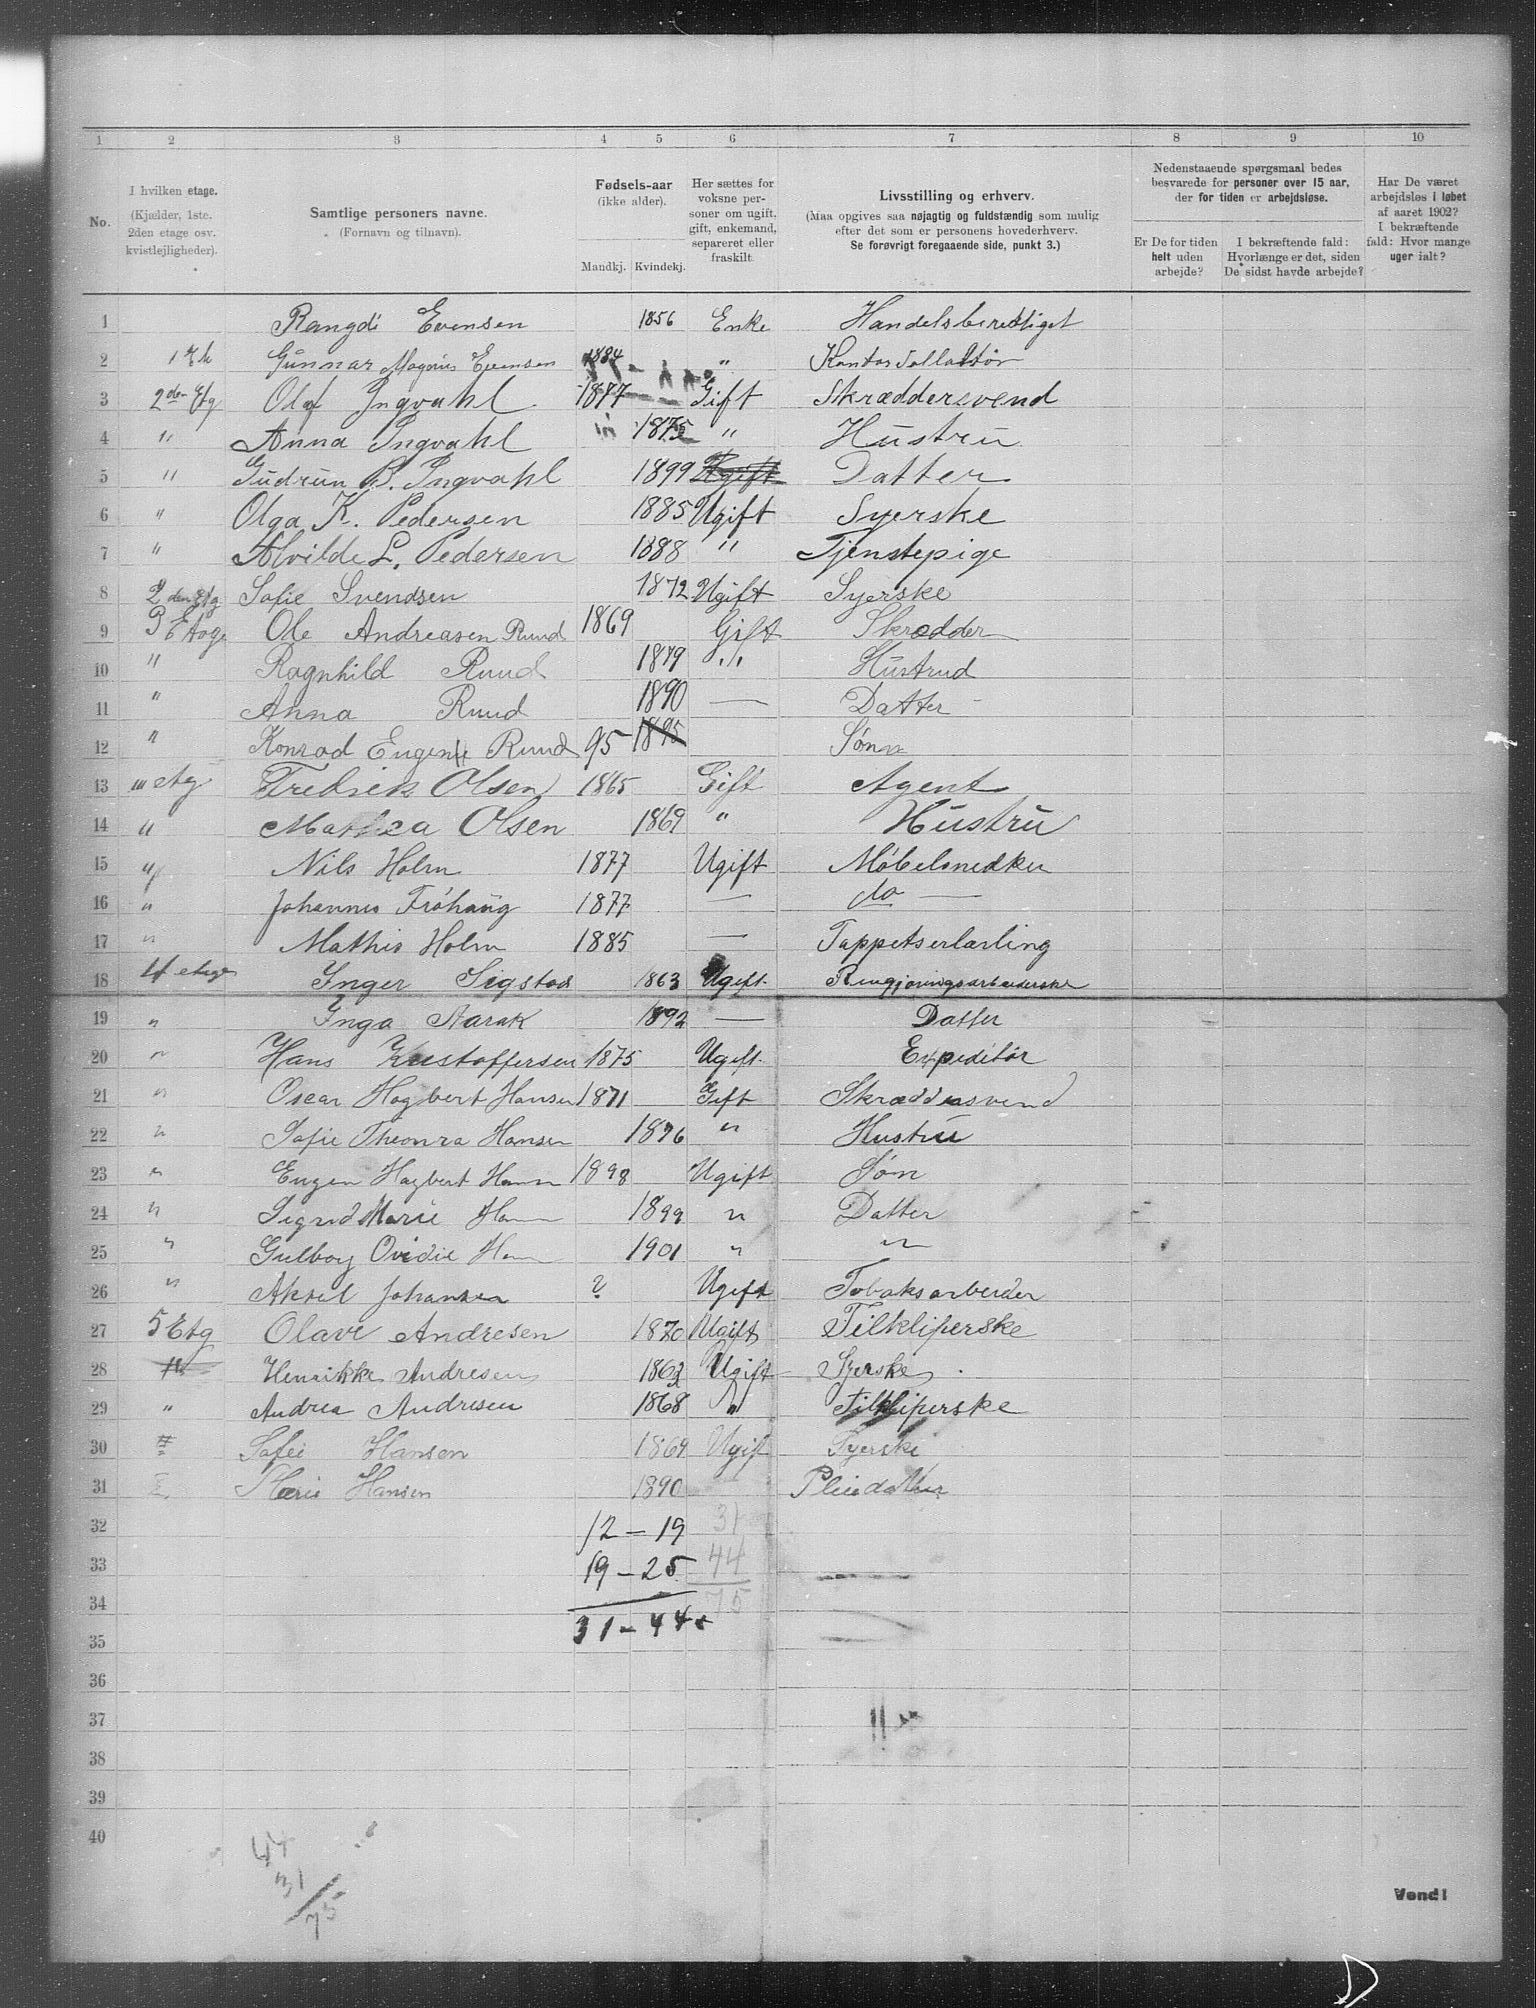 1 2 3 4 5 6 7 8 9 10
No.
I hvilken etage.
(Kjælder, 1ste.
2den etage osv.
kvistlejligheder).
Samtlige personers navne.
(Fornavn og tilnavn).
Fødsels-aar
(ikke alder).
Mandkj. Kvindekj.
Her sættes for
voksne per-
soner om ugift,
gift, enkemand,
separeret eller
fraskilt.
Livsstilling og erhverv.
(Maa opgives saa nøjagtig og fuldstændig som mulig
efter det som er personens hovederhverv.
Se forøvrigt foregaaende side, punkt 3.)
Nedenstaaende spørgsmaal bedes
besvarede for personer over 15 aar,
der for tiden er arbejdsløse.
Er De for tiden
helt uden
arbejde?
I bekræftende fald:
Hvorlænge er det, siden
De sidst havde arbejde?
Har De været
arbejdsløs i løbet
af aaret 1902?
I bekræftende
fald: Hvor mange
uger ialt?
1 Rangdi Evensen 1856 Enke Handelsberettiget
2 Gunnar Magnus Evensen 1884 "
3 2den Etg Olaf Ingvahl 1877 Gift Skræddersvend
4 " Anna Ingvahl 1875 " Hustru
5 " Gudrun B. Ingvahl 1899 Ugift Datter
6 " Olga K. Pedersen 1885 Ugift Syerske
7 " Alvilde L. Pedersen 1888 " Tjenstepige
8 2den Etg Sofie Svendsen 1872 Ugift Syerske
9 3 Etage Ole Andreasen Ruud 1869 Gift Skrædder
10 " Ragnhild Ruud 1879 " Hustrud
11 " Anna Ruud 1890 — Datter
12 " Konrad Eugen Ruud 95 1895 Sønn
13 III etg Fredrick Olsen 1865 Gift Agent
14 " Mathea Olsen 1869 " Hustru
15 " Nils Holm 1877 Ugift Møbelsnedker
16 " Johannes Fröhaug 1877 — do —
17 " Mathis Holm 1885 — Tappetserlærling
18 4 etage Inger Sigstad 1863 Ugift Rengjøringsarbeiderske
19 " Inga Aarak 1892 — Datter
20 " Hans Kristoffersen 1875 Ugift Expeditør
21 " Oscar Hagbert Hansen 1871 Gift Skræddersvend
22 " Sofie Theonra Hansen 1876 " Hustru
23 " Eugen Hagbert Hansen 1898 Ugift Søn
24 " Sigrid Marie Hansen 1899 " Datter
25 " Gulborg Ovidie Hansen 1901 " "
26 " Aksel Johansen ? Ugift Tobaksarbeider
27 5 Etg Olave Andresen 1870 Ugift Tilkliperske
28 " Henrikke Andresen 1862 Ugift Syerske
29 " Andrea Andresen 1868 " Tilkliperske
30 " Sofie Hansen 1869 Ugift Syerske
31 Marie Hansen 1890 Pleiedatter
32 12 — 19 31
33 19 — 25 44
34 75
31 — 44
35
36
37
38
39
40
44
31
75
Vend!